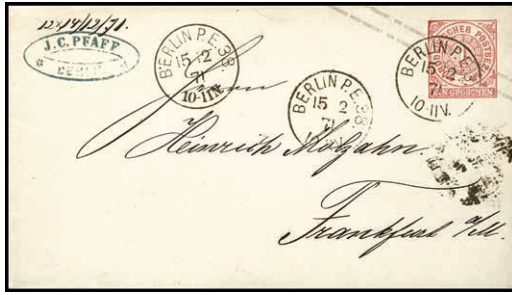 J. C. PFAFF
BERLIN
BERLIN P.E. 38.
15 12
71
10-11N.
BERLIN P.E. 38
15 2
71
BERLIN P.E.
15 2
71
10-11N.
GROSCHEN
Herrn
Heinrich Molzahn.
Frankfurt a/M.